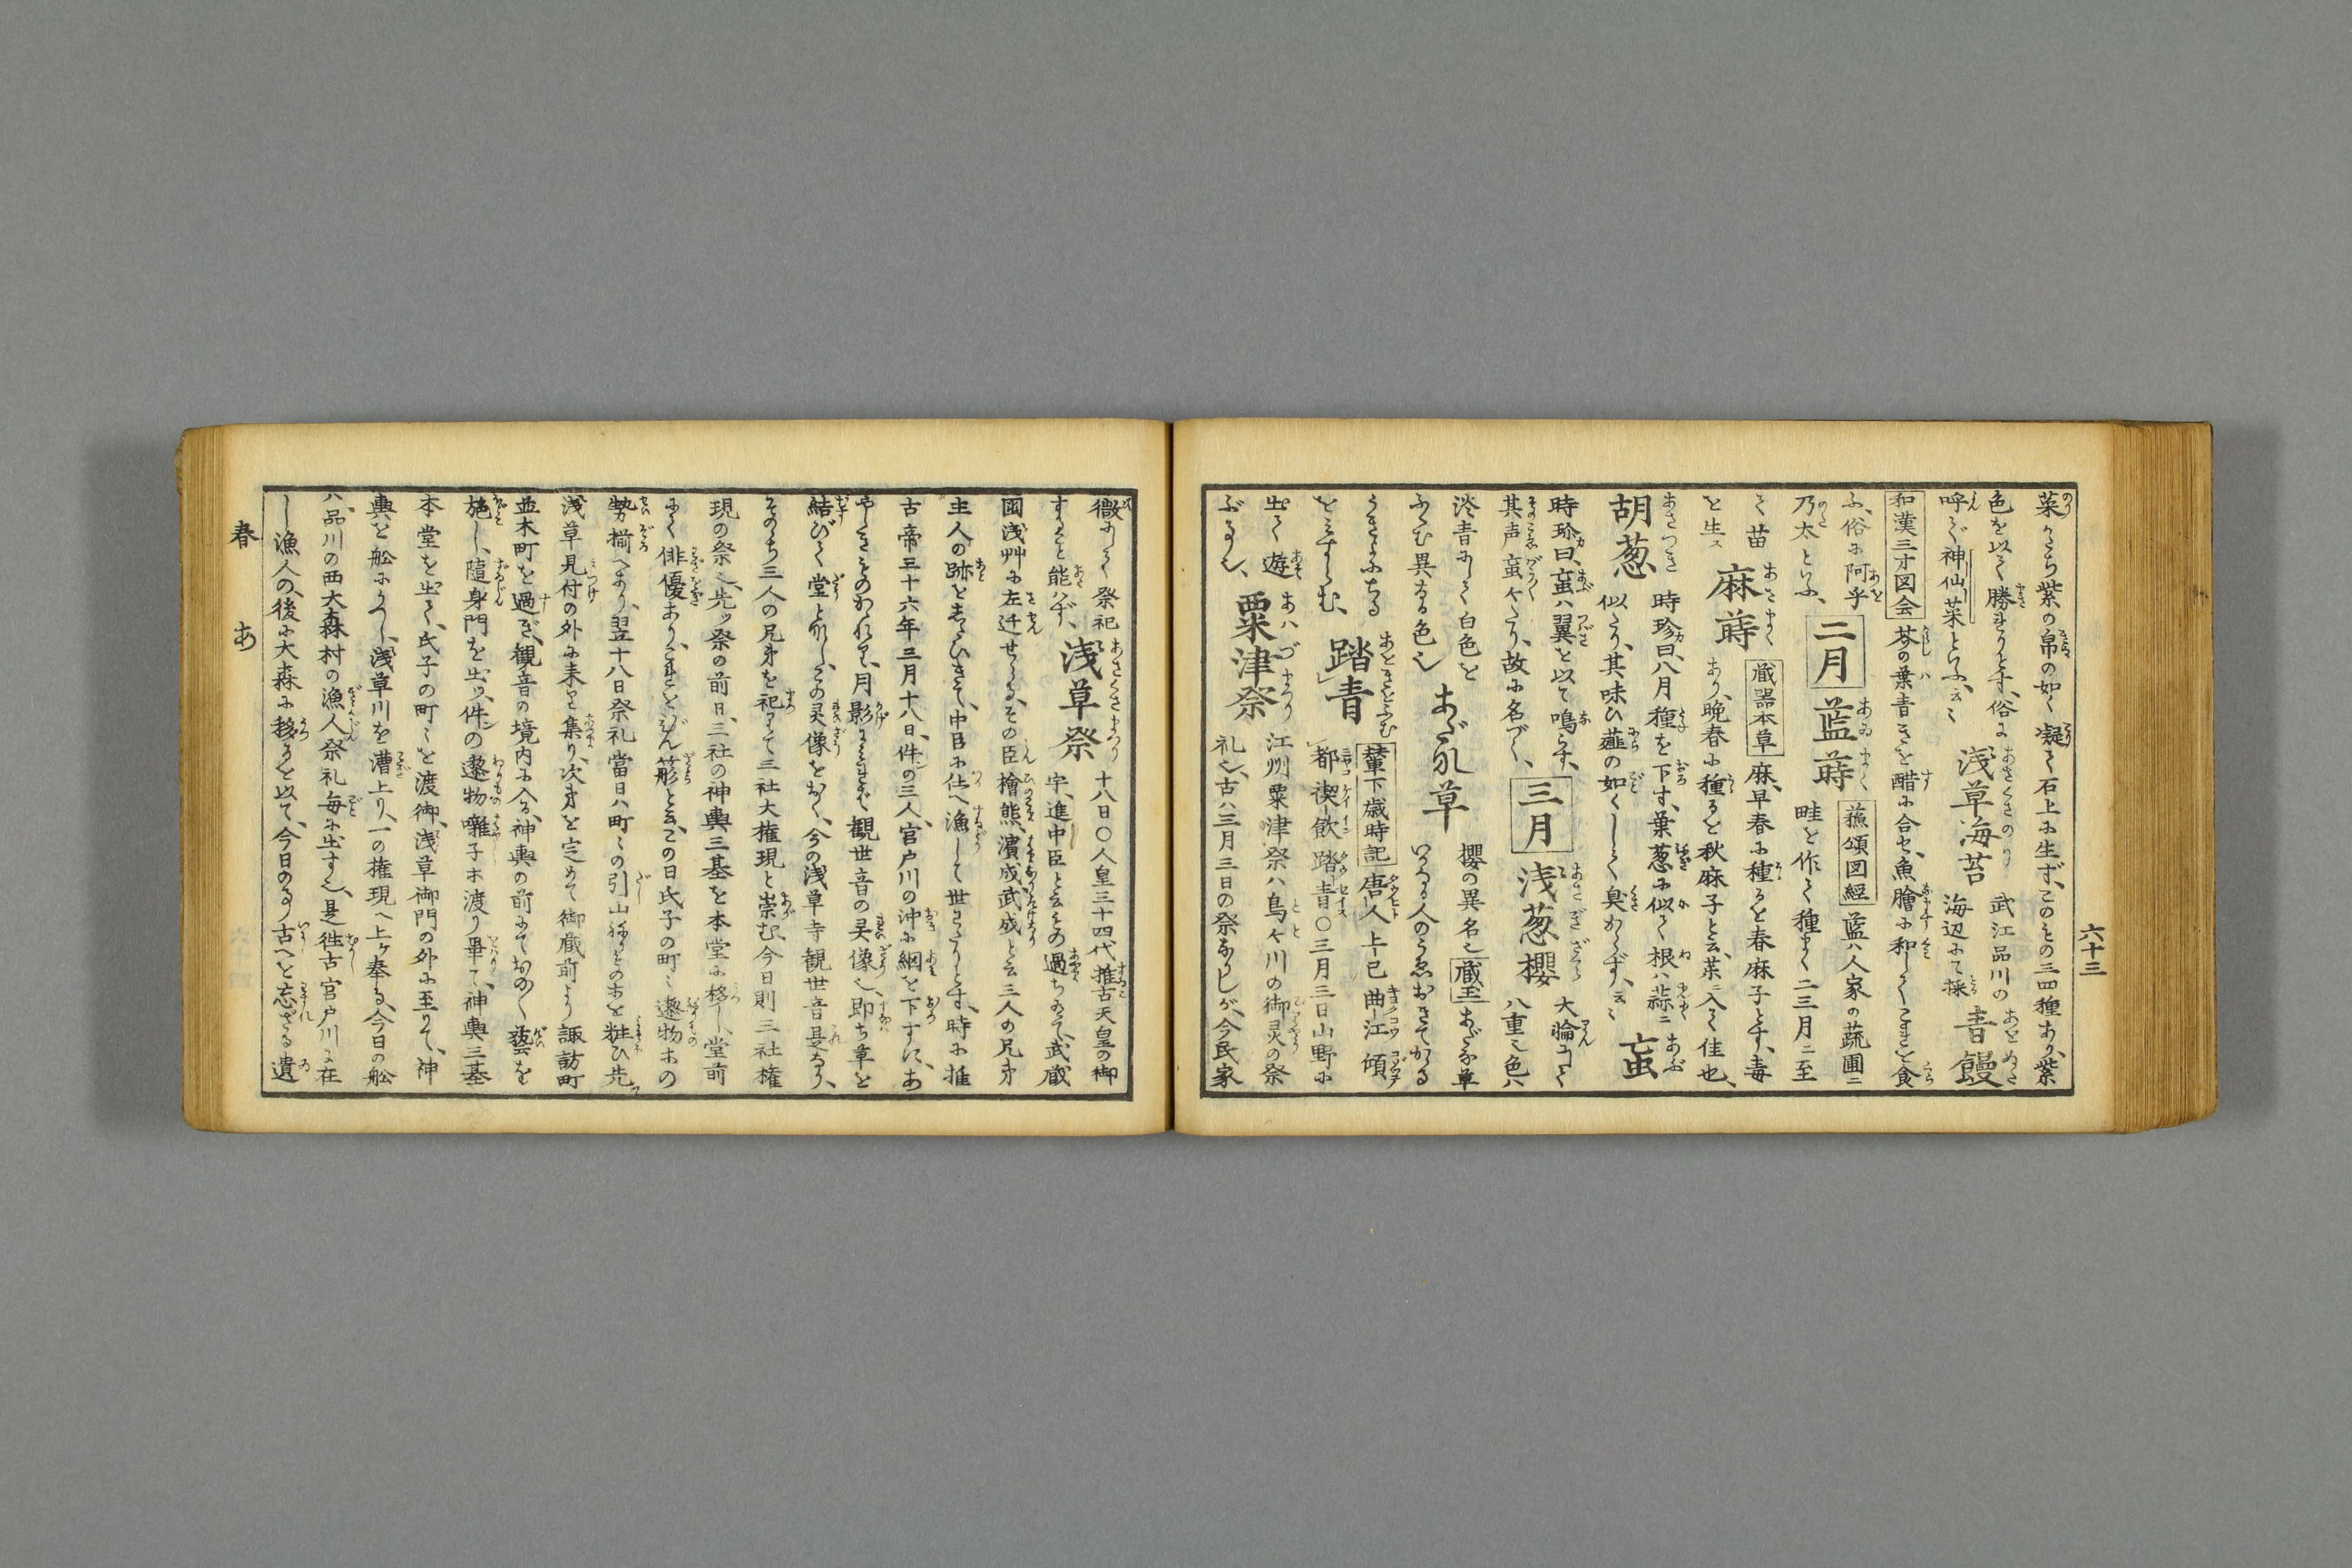 六十三
菜のうち紫の帛の如く凝て石上に生ず、このもの三四種あり、紫
色を以て勝れりとす、俗に 浅草海苔 武江品川の
呼で神仙菜といふ、云々 海辺にて採 青饅
和漢三才図会 芥の葉青きを醋に合せ、魚膾に和してこれを食
ふ、俗に阿乎 二月 藍蒔 蘓頌図経 藍ハ人家の蔬圃ニ
乃太といふ、 畦を作て種まく二三月ニ至
て苗 麻蒔 蔵器本草 麻、早春に種るを春麻子とす、毒
を生ス あり、晩春に種るを秋麻子と云、薬ニ入て佳也、
胡葱 時珍曰、八月種を下す、葉葱に似て根ハ蒜ニ
似たり、其味ひ薤の如くして臭からず、云々 䖟
時珍曰、䖟ハ翼を以て鳴らす、 三月 浅葱櫻 大輪にして
其声䖟々たり、故に名づく、 八重也色ハ
淡青にして白色を あだ名草 櫻の異名也 蔵玉 あだな草
ふくむ異なる色也 いかなる人のうゑおきてかゝる
うきよにちる 踏青 輦下歳時記 唐人上巳曲江傾
をミすらむ、 都禊飲踏青〇三月三日山野に
出て遊 粟津祭 江州粟津祭ハ鳥々川の御灵の祭
ぶるし、 礼也、古ハ三月三日の祭なりしが、今民家
微にして祭祀 浅草祭 十八日〇人皇三十四代推古天皇の御
することと能ハず、 宇、進中臣と云もの過ちありて、武蔵
国浅艸に左迁せらる、その臣檜熊、濱成武成と云三人の兄弟
主人の跡をしたひきて、中臣に仕へ漁して世をわたりとす、時に推
古帝三十六年三月十八日、件の三人、宮戸川の沖に網を下すに、あ
やしきものかゝれり、月影にミれば観世音の灵像也、即ち草を
結びて堂と那し、この灵像をおく、今の浅草寺観世音是なり、
そのゝち三人の兄弟を祀りて三社大権現と崇む、今日則三社権
現の祭也、先ッ祭の前日、三社の神輿三基を本堂に移し、堂前
にて俳優あり、これをびんざさらと云、この日氏子の町々邀物ホの
勢揃へあり、翌十八日祭礼當日ハ町々の引山ねりものホを粧ひ先
浅草見付の外に来り集り、次第を定めて御蔵前より諏訪町
並木町を過ぎ、観音の境内に入る、神輿の前にておの〳〵藝を
施し、隨身門を出ッ、件の邀物囃子ホ渡り畢て、神輿三基
本堂を出て、氏子の町々を渡御、浅草御門の外に至りて、神
輿を舩にうつし、浅草川を漕上り、一の権現へ上ヶ奉る、今日の舩
ハ、品川の西大森村の漁人祭礼毎に出す也、是徃古宮戸川に在
し漁人の後に大森に移るを以て、今日のみ古へを忘ざる遺
春 あ